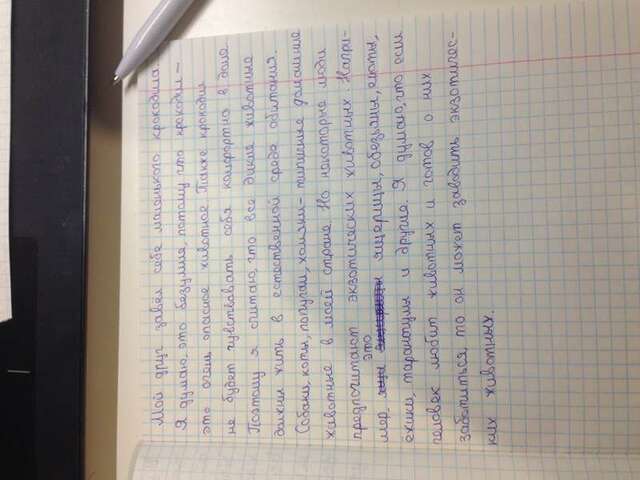 Мой друг завёл себе маленького крокодила.
Я думаю, это безумие, потому что крокодил -
это очень опасное животное. Также крокодил
не будет чувствовать себя комфортно в доме.
Поэтому я считаю, что все дикие животные
должны жить в естественной среде обитания.
Собаки, коты, попугаи, хомяки - типичные домашние
животные в моей стране. Но некоторые люди
предпочитают экзотических животных. Напри-
мер, это ящерицы, обезьяны, еноты,
ёжики, тарантулы и другие. Я думаю, что если
человек любит животных и готов о них
заботиться, то он может заводить экзотичес-
ких животных.